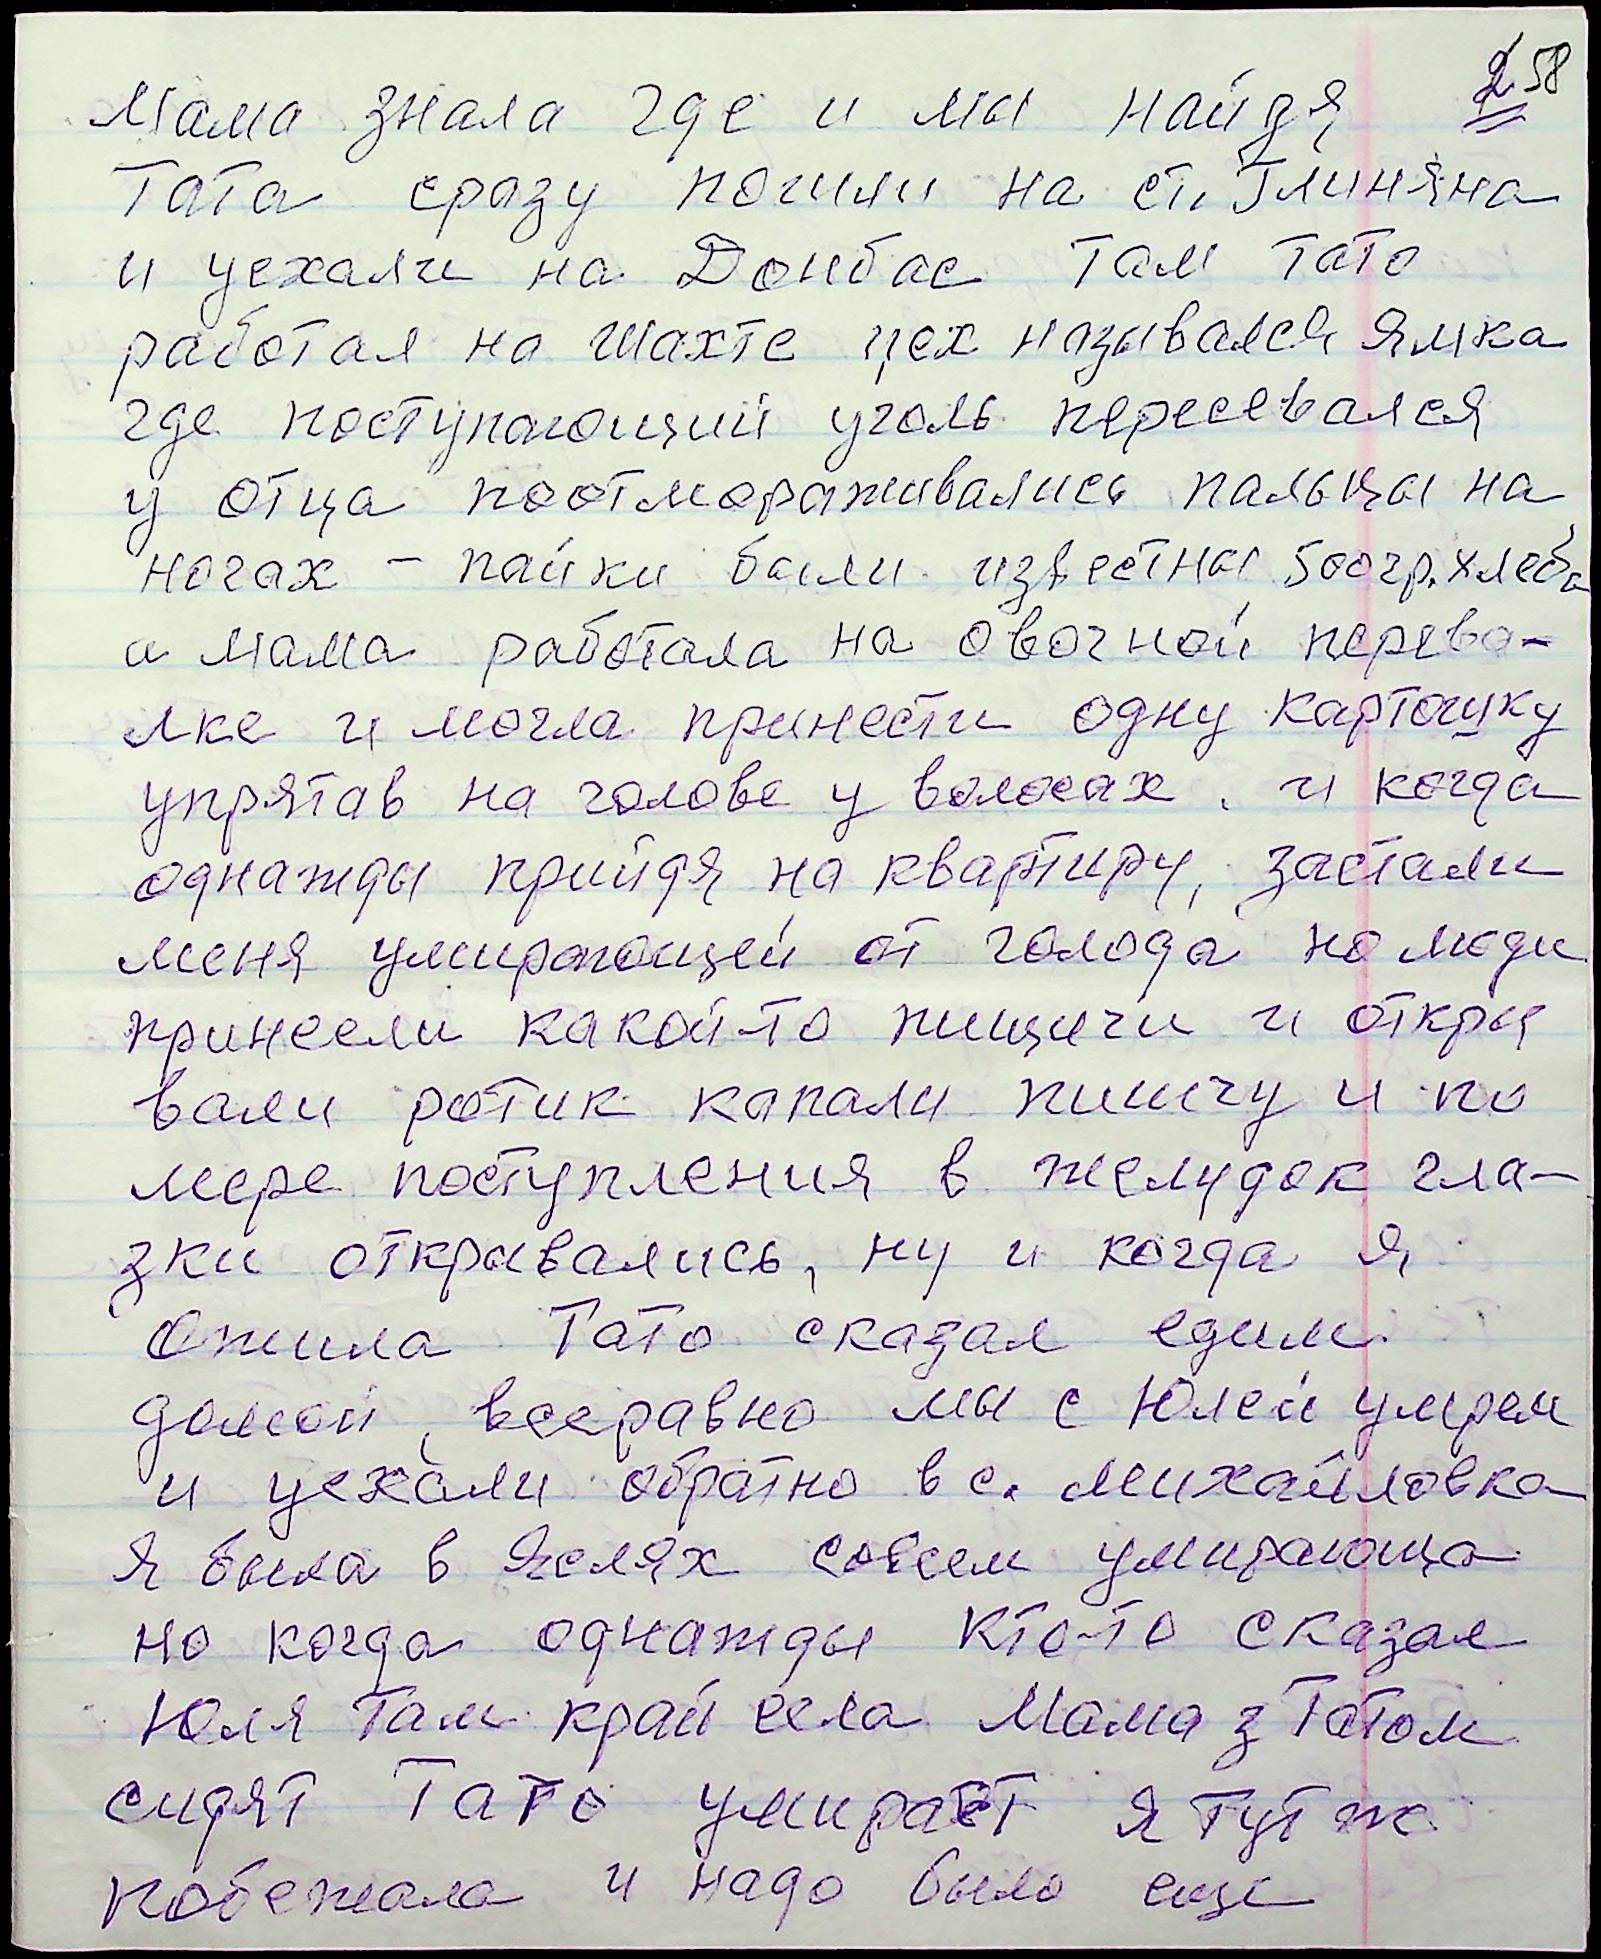 2 58
Мама знала где и мы найдя
Тата сразу пошли на ст. Глиняна
и уехали на Донбас Там Тато
работал на шахте цех назывался Ямка
где поступающий уголь пересевался
у отца поотмораживались пальцы на
ногах – пайки были известны 500 гр. хлеба
а мама работала на овочной перева-
лке и могла принести одну картошку
упрятав на голове у волосах. и когда
однажды прийдя на квартиру, застали
меня умирающей от голода но люди
принесли какой-то пищичи и откры
вали ротик капали пишчу и по
мере поступления в желудок гла-
зки открывались, ну и когда я
Ожила Тато сказал едим
домой, всеравно мы с Юлей умрем
и уехали обратно в с. Михайловка
Я была в Яслях совсем умирающа
но когда однажды кто-то сказал
Юля там край села Мама з Татом
сидят Тато умирает я тут же
побежала и надо было еще